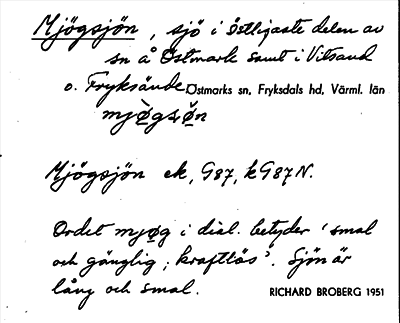 Mjögsjön, sjö i östligaste delen av
sn å Östmark samt i Vitsand
o. Fryksände Östmarks sn, Fryksdals hd, Värml. län
mjø̀gsø̌n
Mjögsjön ek, G87, kG87N.
Ordet mjøg i dial. betyder 'smal
och gänglig; kraftlös'. Sjön är
lång och smal.
RICHARD BROBERG 1951